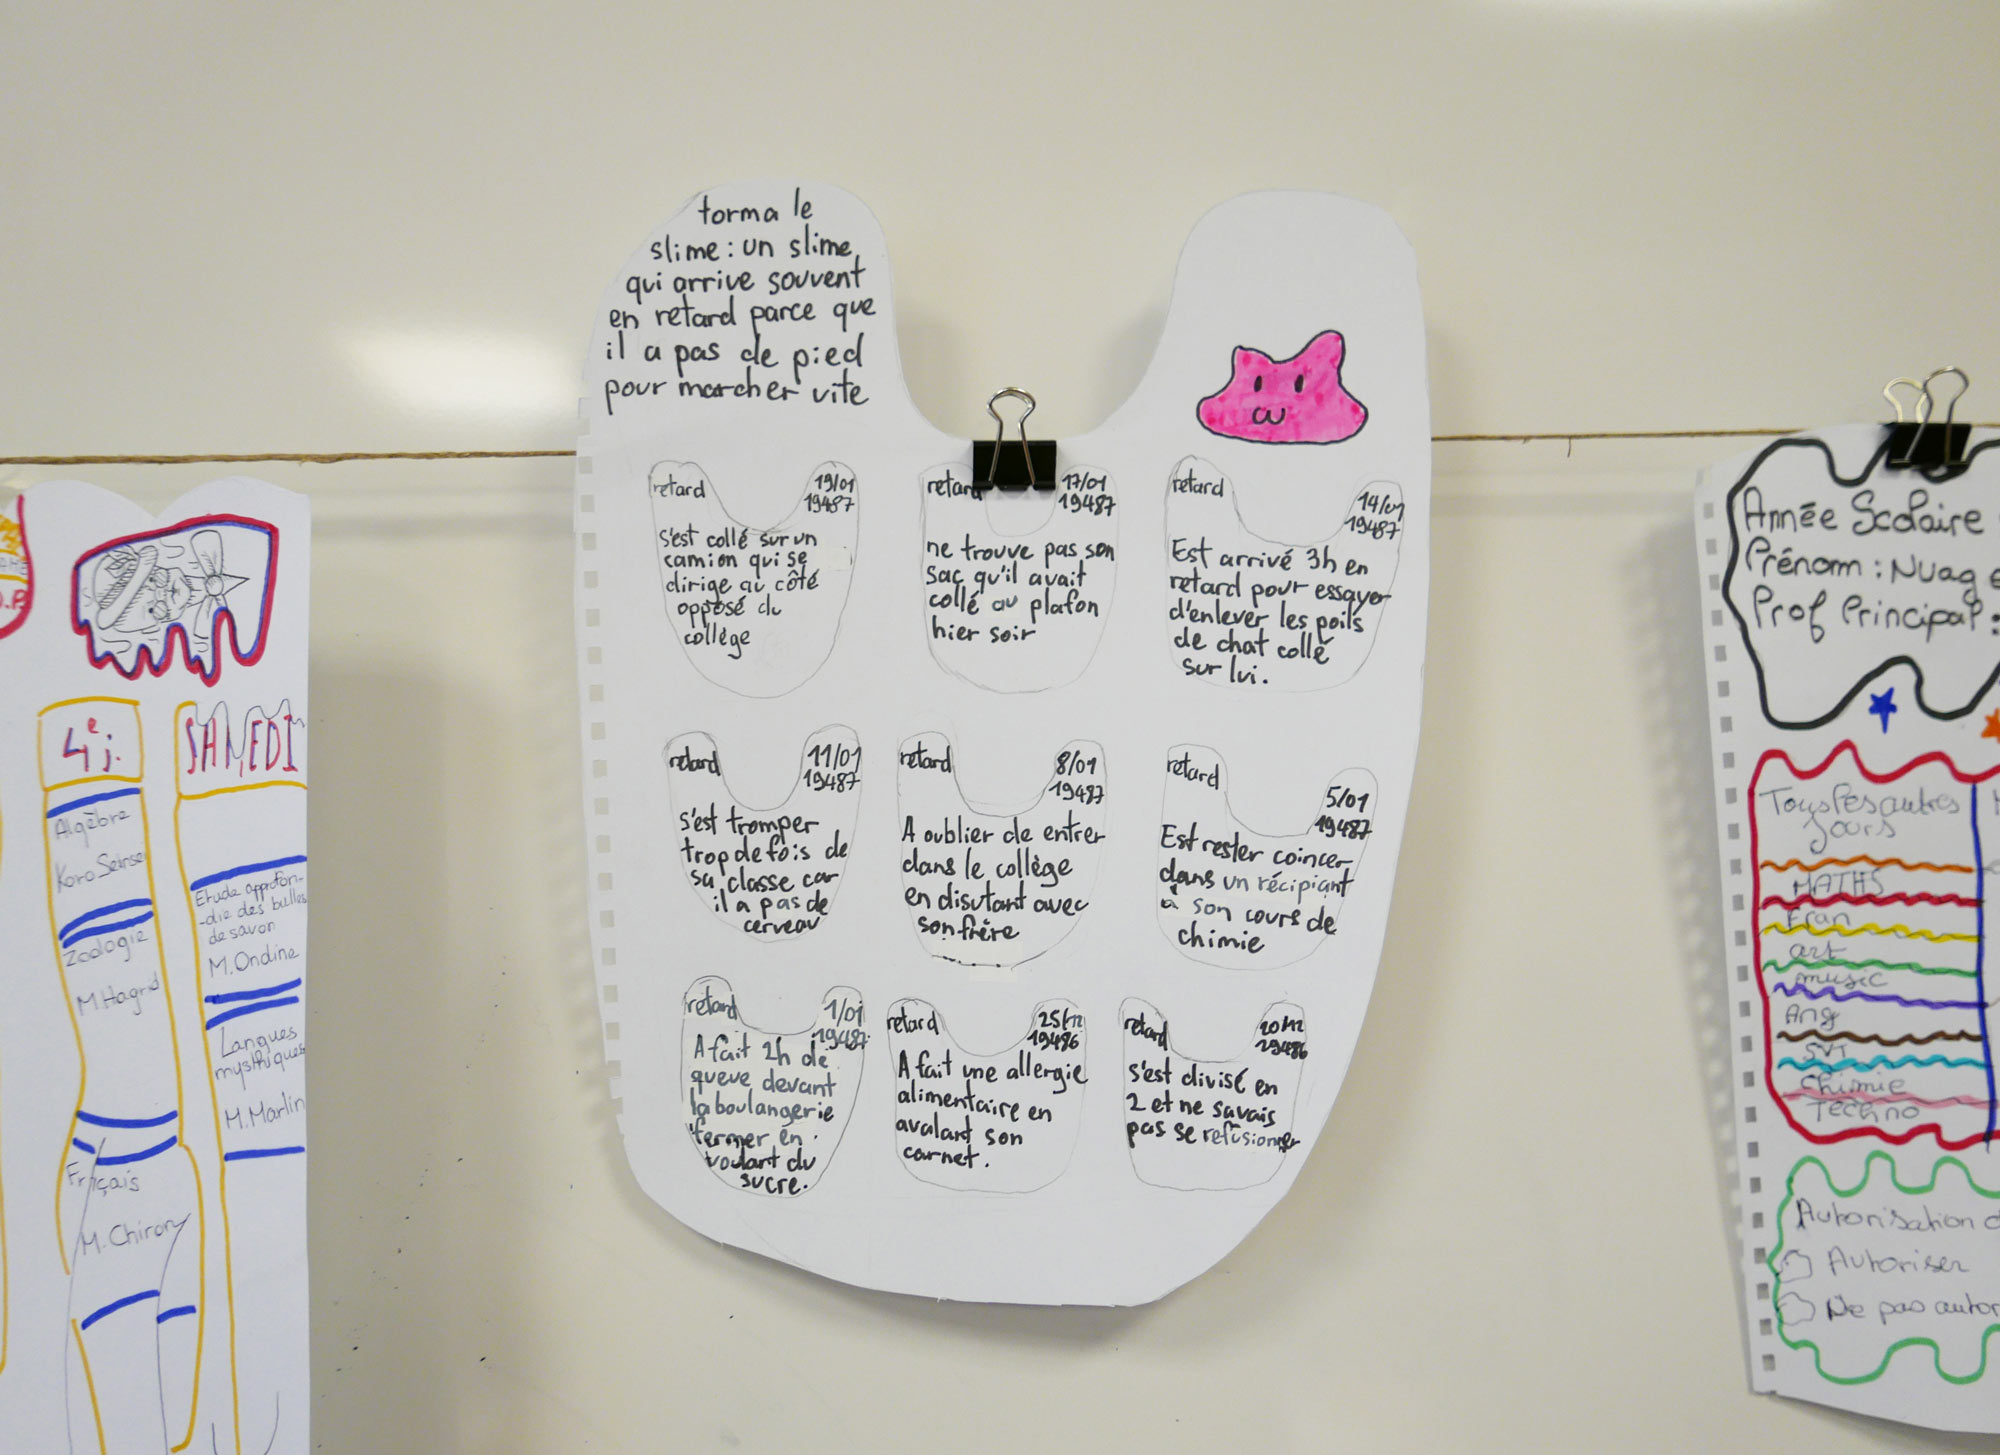 torma le
slime : un slime
qui arrive souvent
en retard parce que
il a pas de pied
pour marcher vite
retard
19/01
19487
s'est collé sur un
camion qui se
dirige au côté
opposé du
collège
retard
17/01
19487
ne trouve pas son
sac qu'il avait
collé au plafon
hier soir
retard
14/01
19487
Est arrivé 3h en
retard pour essayer
d'enlever les poils
de chat collé
sur lui.
retard
11/01
19487
s'est tromper
trop de fois de
sa classe car
il a pas de
cerveau
retard
8/01
19487
A oublier de entrer
dans le collège
en disutant avec
son frère
retard
5/01
19487
Est rester coincer
dans un récipiant
à son cours de
chimie
retard
1/01
19487
A fait 2h de
queue devant
la boulangerie
fermer en
voulant du
sucre.
retard
25/12
19486
A fait une allergie
alimentaire en
avalant son
carnet.
retard
20/12
19486
s'est divisé en
2 et ne savais
pas se refusionner
4e j.
Algèbre
Koro Sense
Zoologie
M. Hagrid
Français
M. Chiron
SAMEDI
Etude approfon-
-die des bulles
de savon
M. Ondine
Langues
mysthiques
M. Marlin
Année Scolaire
Prénom : Nuage
Prof Principal :
Tous les autres
Jours
MATHS
Fran
art
music
Ang
SVT
Chimie
Techno
Autorisation d
Autoriser
Ne pas autor